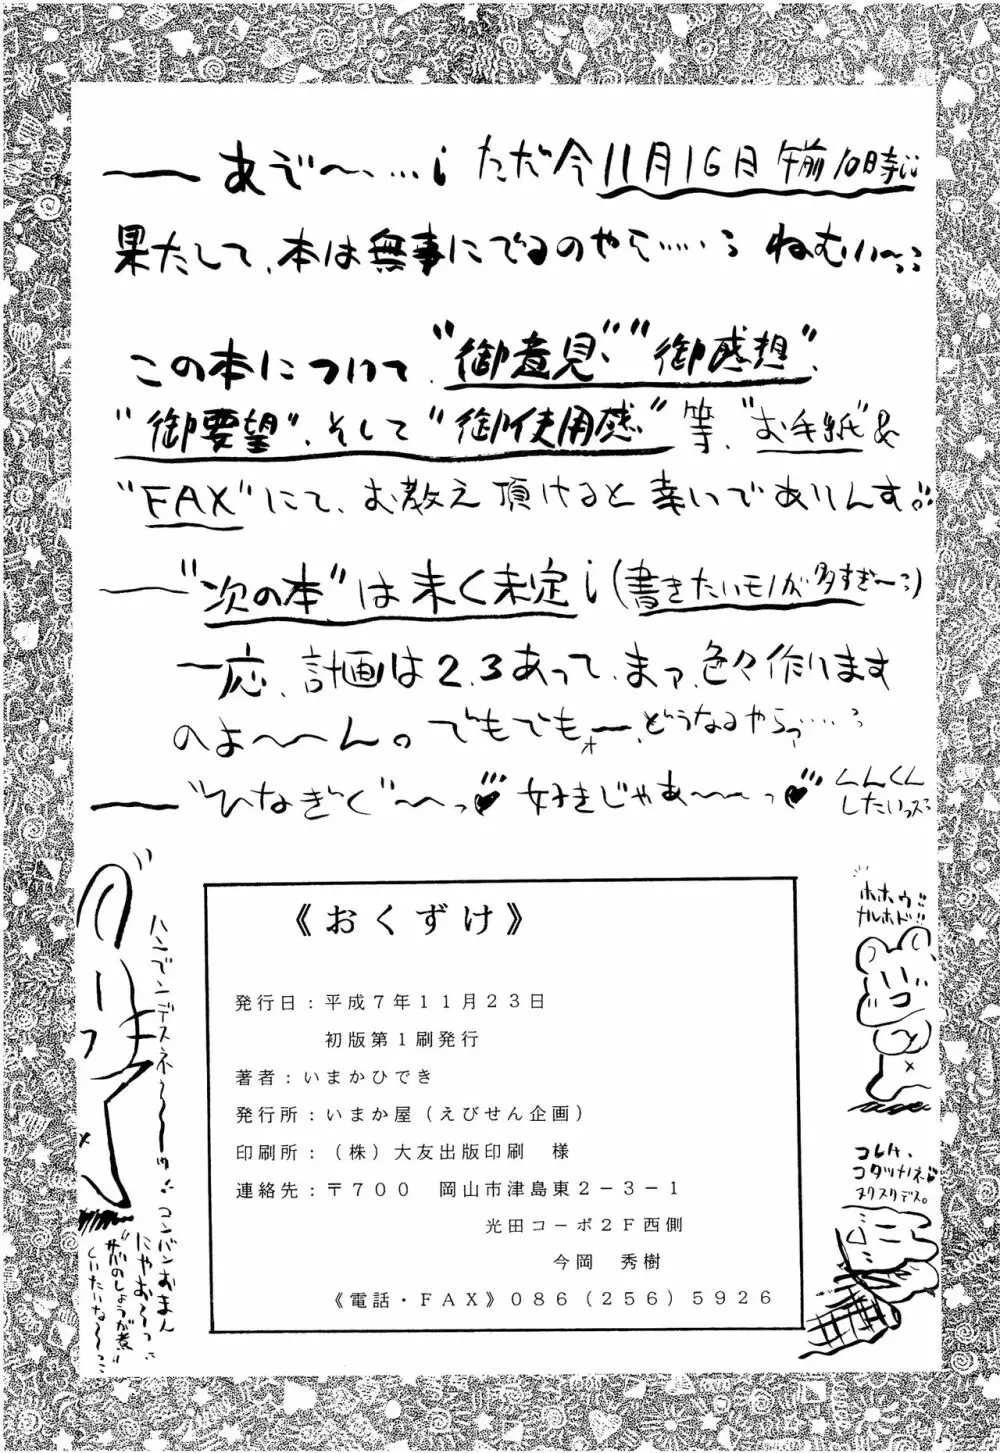 あぞ〜、…¡ ただ今11月16日午前10時¡¡
果たして、本は無事にでるのやら……? ねむい〜っ
この本について、"御意見"、"御感想"、
"御要望"、そして"御使用感"等、"お手紙"&
"FAX"にて、お教え頂けると幸いでありんす。
"次の本"は未く未定¡(書きたいモノが多すぎ〜っ)
一応、計画は2.3あって、まァ、色々作ります
のよ〜〜ん。でもでもォー、どうなるやらっ……?
"ひなぎく"〜っ♥ 好きじゃあ〜〜っ♥ くんくん
したいっス
《おくずけ》
発行日：平成7年11月23日
初版第1刷発行
著者：いまかひでき
発行所：いまか屋（えびせん企画）
印刷所：（株）大友出版印刷　様
連絡先：〒700　岡山市津島東2－3－1
光田コーポ2F西側
今岡　秀樹
《電話・FAX》086（256）5926
ハンデンデスネ〜〜
コンバンおまん
にゃお〜っ
"サバのしょうが煮"
しいたいな〜っ
ホホウ!!
ナルホド!!
コレハ、
コタツナノネ♥
ヌクヌクデス。